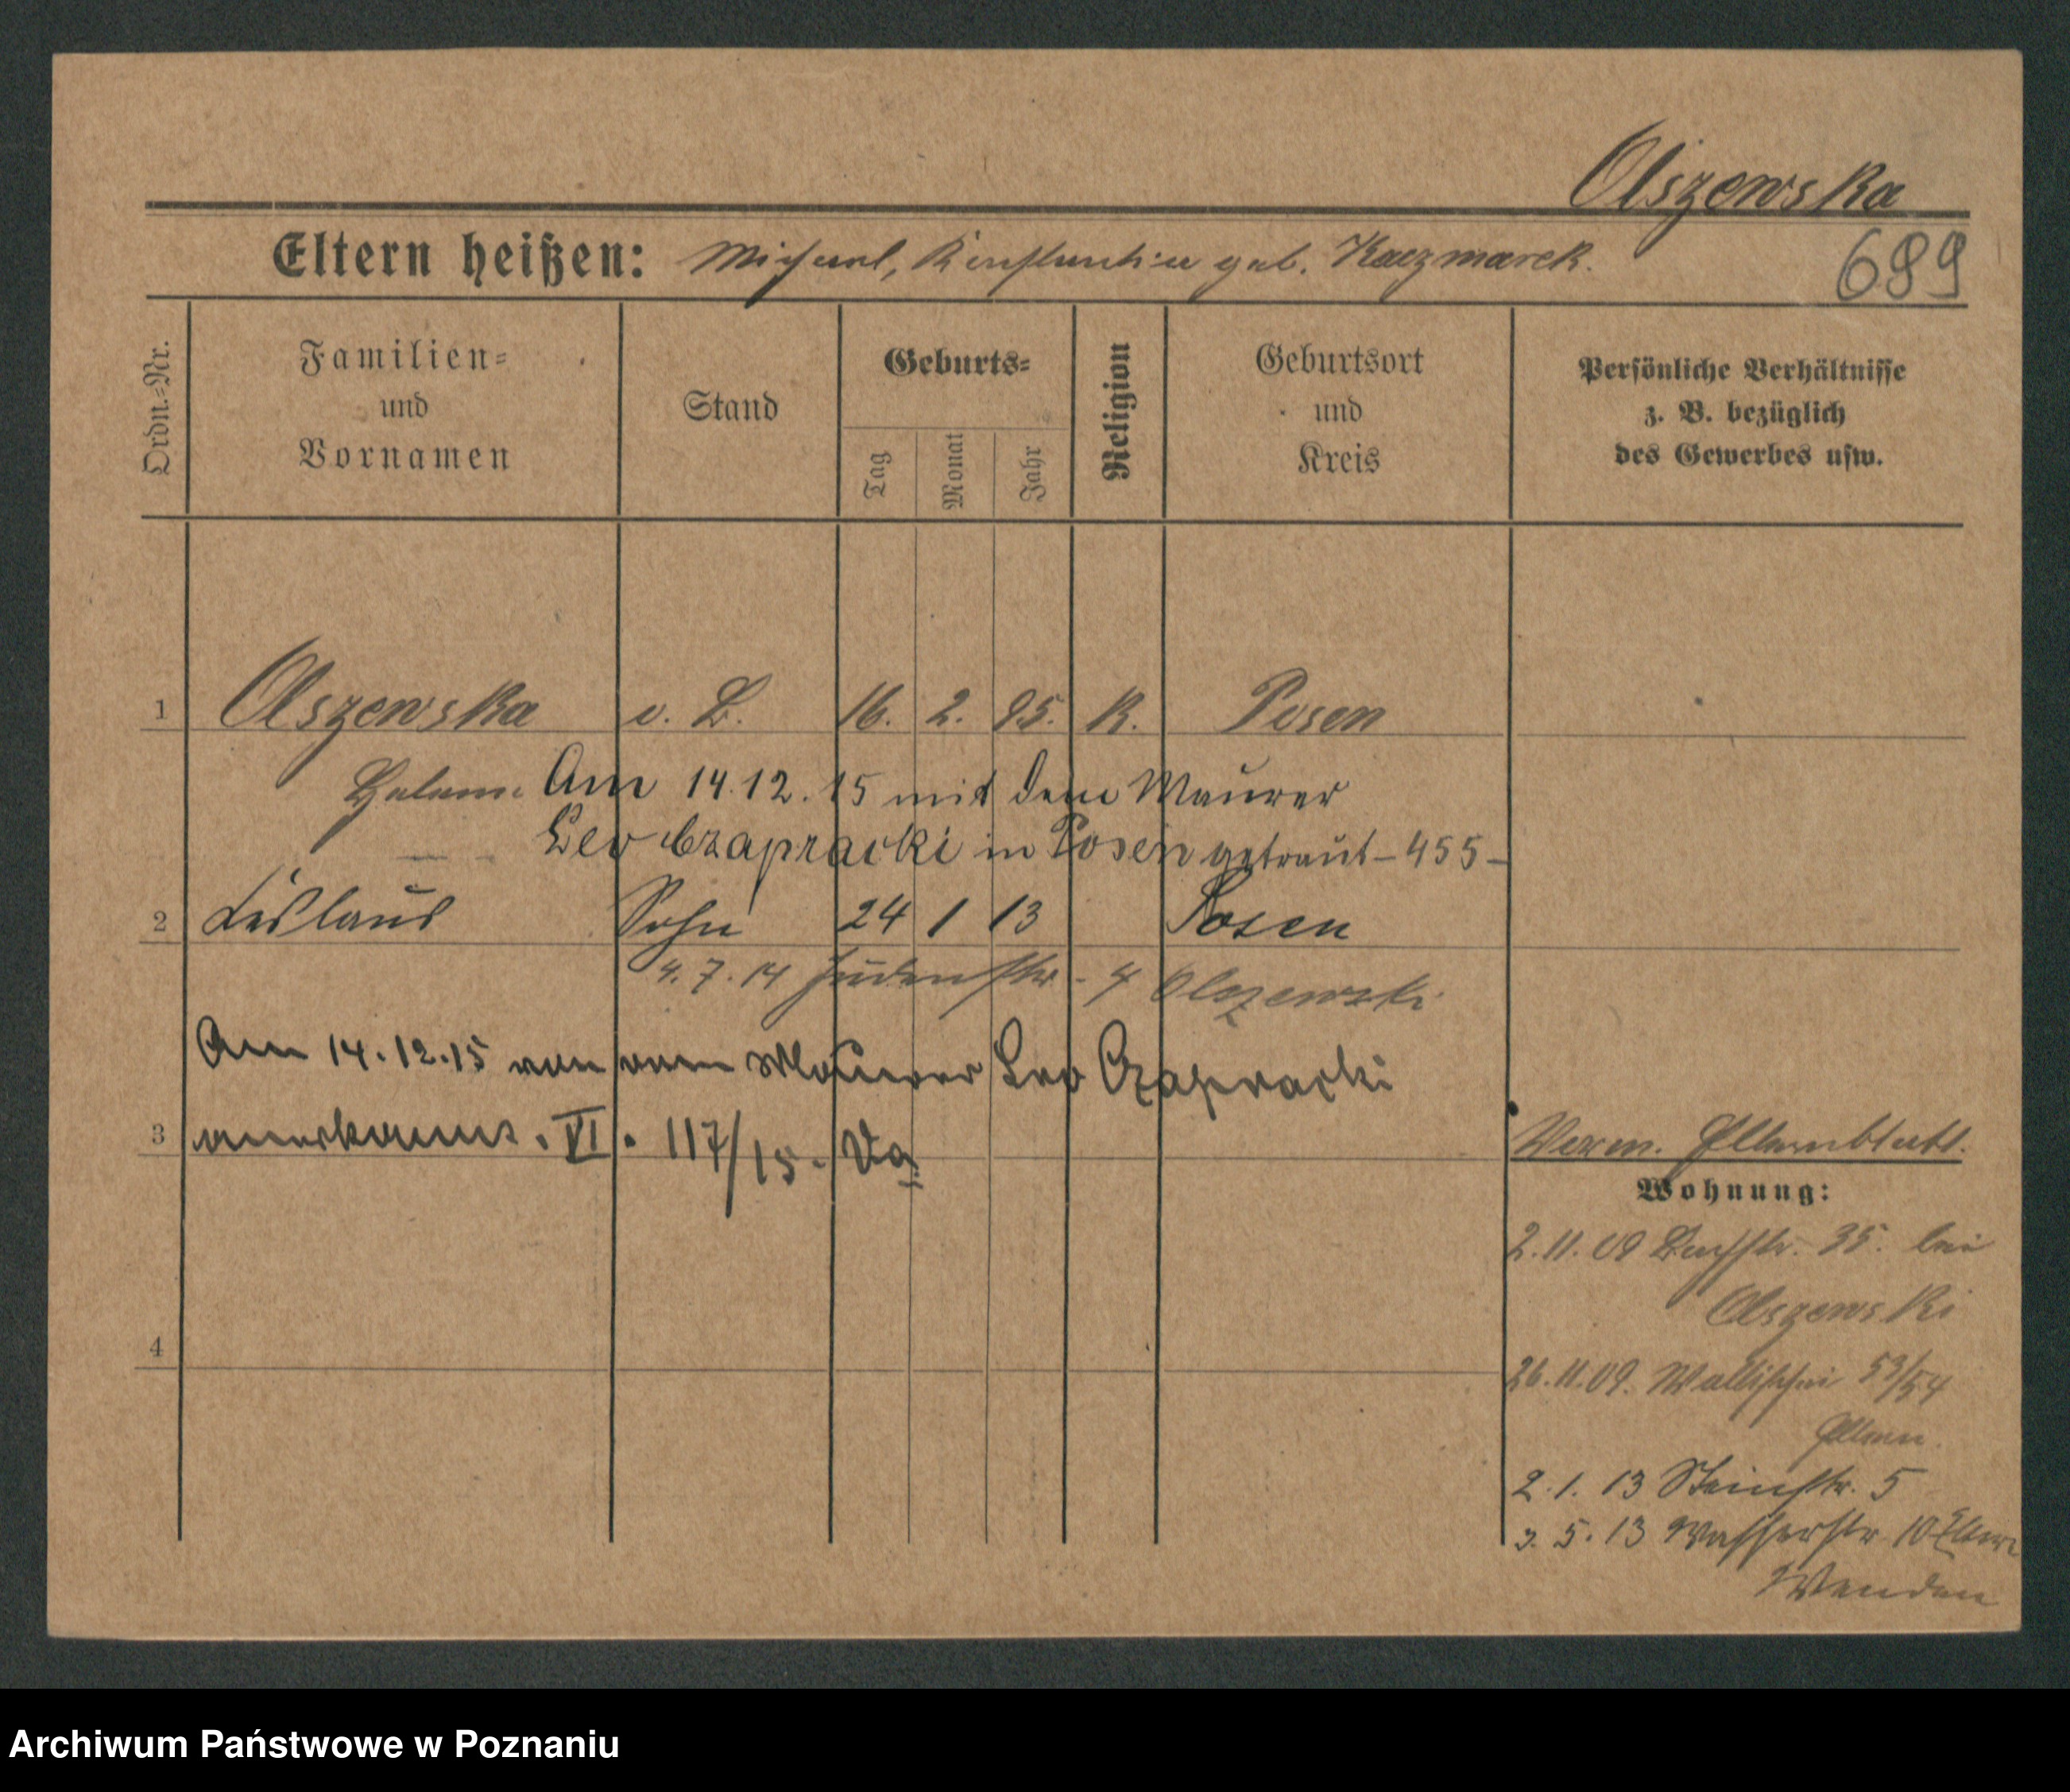 Olszewska
Eltern heißen: Michael, Konstantia geb. Kaczmarek.
689
Ordn.-Nr.
Familien-
und
Vornamen
Stand
Geburts-
Tag
Monat
Jahr
Religion
Geburtsort
und
Kreis
Persönliche Verhältnisse
z. B. bezüglich
des Gewerbes usw.
1 Olszewska o. B. 16. 2. 95. K. Posen
Helene Am 14.12.15 mit dem Maurer
Leo Czapracki in Posen getraut - 455 -
2 Sohn 24 1 13 Posen
4.7.14 Judenstr. 4 Olszewski
Am 14.12.15 von vom Maurer Leo Czapracki
3 anerkannt. VI. 117/15.
Verm. Elternblatt.
Wohnung:
2.11.09 35. bei
Olszewski
26.11.09. Wallischei 53/54
Eltern
2.1.13 Steinstr. 5
3.5.13 Wasserstr. 10 Eltern
Wenden
4
Archiwum Państwowe w Poznaniu